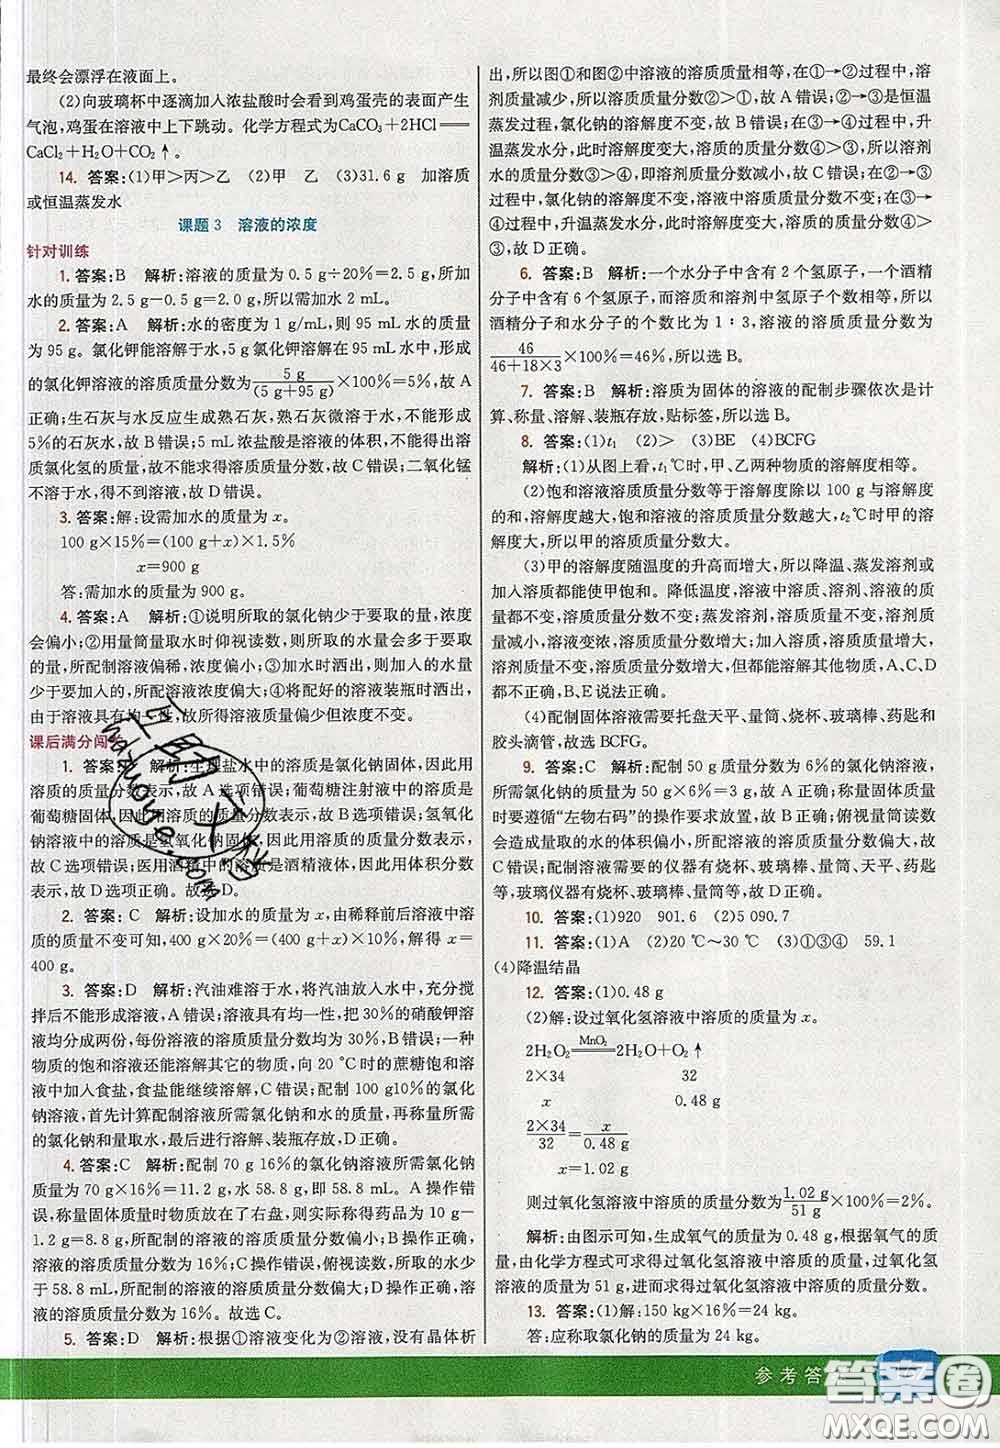 最终会漂浮在液面上。
(2)向玻璃杯中逐滴加入浓盐酸时会看到鸡蛋壳的表面产生
气泡,鸡蛋在溶液中上下跳动。化学方程式为CaCO₃+2HCl══
CaCl₂+H₂O+CO₂↑。
14. 答案:(1)甲>丙>乙 (2)甲 乙 (3)31.6 g 加溶质
或恒温蒸发水
课题 3 溶液的浓度
针对训练
1. 答案:B 解析:溶液的质量为 0.5 g÷20%=2.5 g,所加
水的质量为 2.5 g-0.5 g=2.0 g,所以需加水 2 mL。
2. 答案:A 解析:水的密度为 1 g/mL,则 95 mL 水的质量
为 95 g。氯化钾能溶解于水,5 g 氯化钾溶解在 95 mL 水中,形成
的氯化钾溶液的溶质质量分数为 5 g/(5 g+95 g)×100%=5%,故 A
正确;生石灰与水反应生成熟石灰,熟石灰微溶于水,不能形成
5%的石灰水,故 B 错误;5 mL 浓盐酸是溶液的体积,不能得出溶
质氯化氢的质量,故不能求得溶质质量分数,故 C 错误;二氧化锰
不溶于水,得不到溶液,故 D 错误。
3. 答案:解:设需加水的质量为 x。
100 g×15%=(100 g+x)×1.5%
x=900 g
答:需加水的质量为 900 g。
4. 答案:A 解析:①说明所取的氯化钠少于要取的量,浓度
会偏小;②用量筒量取水时仰视读数,则所取的水量会多于要取的
量,所配制溶液偏稀,浓度偏小;③加水时洒出,则加入的水量
少于要加入的,所配溶液浓度偏大;④将配好的溶液装瓶时洒出,
由于溶液具有均一性,故所得溶液质量偏少但浓度不变。
课后满分闯关
1. 答案: 解析:生理盐水中的溶质是氯化钠固体,因此用
溶质的质量分数表示,故 A 选项错误;葡萄糖注射液中的溶质是
葡萄糖固体,因此用溶质的质量分数表示,故 B 选项错误;氢氧化
钠溶液中的溶质是氢氧化钠固体,因此用溶质的质量分数表示,
故 C 选项错误;医用酒精中的溶质是酒精液体,因此用体积分数
表示,故 D 选项正确。故选 D。
2. 答案:C 解析:设加水的质量为 x,由稀释前后溶液中溶
质的质量不变可知,400 g×20%=(400 g+x)×10%,解得 x=
400 g。
3. 答案:D 解析:汽油难溶于水,将汽油放入水中,充分搅
拌后不能形成溶液,A 错误;溶液具有均一性,把 30%的硝酸钾溶
液均分成两份,每份溶液的溶质质量分数均为 30%,B 错误;一种
物质的饱和溶液还能溶解其它的物质,向 20 ℃时的蔗糖饱和溶
液中加入食盐,食盐能继续溶解,C 错误;配制 100 g10%的氯化
钠溶液,首先计算配制溶液所需氯化钠和水的质量,再称量所需
的氯化钠和量取水,最后进行溶解、装瓶存放,D正确。
4. 答案:C 解析:配制 70 g 16%的氯化钠溶液所需氯化钠
质量为 70 g×16%=11.2 g,水 58.8 g,即 58.8 mL。A 操作错
误,称量固体质量时物质放在了右盘,则实际称得药品为 10 g-
1.2 g=8.8 g,所配制的溶液的溶质质量分数偏小;B 操作正确,
所配溶液的溶质质量分数为 16%;C 操作错误,俯视读数,水的少
于 58.8 mL,所配制的溶液的溶质质量分数偏大;D 操作正确,溶
液的溶质质量分数为 16%。故选 C。
5. 答案:D 解析:根据①溶液变化为②溶液,没有晶体析
出,所以图①和图②中溶液的溶质质量相等,在①→②过程中,溶
剂质量减少,所以溶质质量分数②>①,故 A 错误;②→③是恒温
蒸发过程,氯化钠的溶解度不变,故 B 错误;在③→④过程中,升
温蒸发水分,此时溶解度变大,溶质的质量分数④>③,所以溶剂
水的质量③>④,即溶剂质量分数减小,故 C 错误;在②→③过
程中,恒温蒸发水分,此时氯化钠溶液中溶质质量分数不变;在③
→④过程中,升温蒸发水分,此时溶解度变大,溶质的质量分数④>
③,故 D 正确。
6. 答案:B 解析:一个水分子中含有 2 个氢原子,一个酒精
分子中含有 6 个氢原子,而溶质和溶剂中氢原子个数相等,所以
酒精分子和水分子的个数比为 1∶3,溶液的溶质质量分数为
46/(46+18×3)×100%=46%,所以选 B。
7. 答案:B 解析:溶质为固体的溶液的配制步骤依次是计
算、称量、溶解、装瓶存放,贴标签,所以选 B。
8. 答案:(1)t₁ (2)> (3)BE (4)BCFG
解析:(1)从图上看,t₁℃时,甲、乙两种物质的溶解度相等。
(2)饱和溶液溶质质量分数等于溶解度除以 100 g 与溶解度
的和,溶解度越大,饱和溶液的溶质质量分数越大,t₂℃时甲的溶
解度大,所以甲的溶质质量分数大。
(3)甲的溶解度随温度的升高而增大,所以降温、蒸发溶剂、
加溶质都能使甲饱和。降低温度,溶液中溶质、溶液、溶剂的质
量都不变,溶质质量分数不变;蒸发溶剂,溶质质量不变,溶剂
质量减小,溶液变浓,溶质质量分数增大;加入溶质,溶质质量增大,
溶剂质量不变,溶质质量分数增大,但溶解度不变,所以 A、C、D
都不正确,B、E 说法正确。
(4)配制固体溶液需要托盘天平、量筒、烧杯、玻璃棒、药匙和
胶头滴管,故选 BCFG。
9. 答案:C 解析:配制 50 g 质量分数为 6%的氯化钠溶液,
所需氯化钠的质量为 50 g×6%=3 g,故 A 正确;称量固体质量
时要遵循“左物右码”的操作要求放置,故 B 正确;俯视量筒读数
会造成量取的水的体积偏小,所配溶液的溶质质量分数偏大,故
C 错误;配制溶液需要的仪器有烧杯、玻璃棒、量筒、天平、药匙
等,玻璃仪器有烧杯、玻璃棒、量筒等,故 D 正确。
10. 答案:(1)920 901.6 (2)5 090.7
11. 答案:(1)A (2)20 ℃～30 ℃ (3)①③④ 59.1
(4)降温结晶
12. 答案:(1)0.48 g
(2)解:设过氧化氢溶液中溶质的质量为 x。
2H₂O₂ ══MnO₂══ 2H₂O+O₂↑
2×34 32
x 0.48 g
2×34/32=x/0.48 g
x=1.02 g
则过氧化氢溶液中溶质的质量分数为 1.02 g/51 g×100%=2%。
解析:由图示可知,生成氧气的质量为 0.48 g,氧气的质
量,由化学方程式可求得过氧化氢溶液中溶质的质量,过氧化氢
溶液的质量为 51 g,进而求得过氧化氢溶液中溶质的质量分数。
13. 答案:(1)解:150 kg×16%=24 kg。
答:应称取氯化钠的质量为 24 kg。
参考答案
答案圈
MXQE.COM